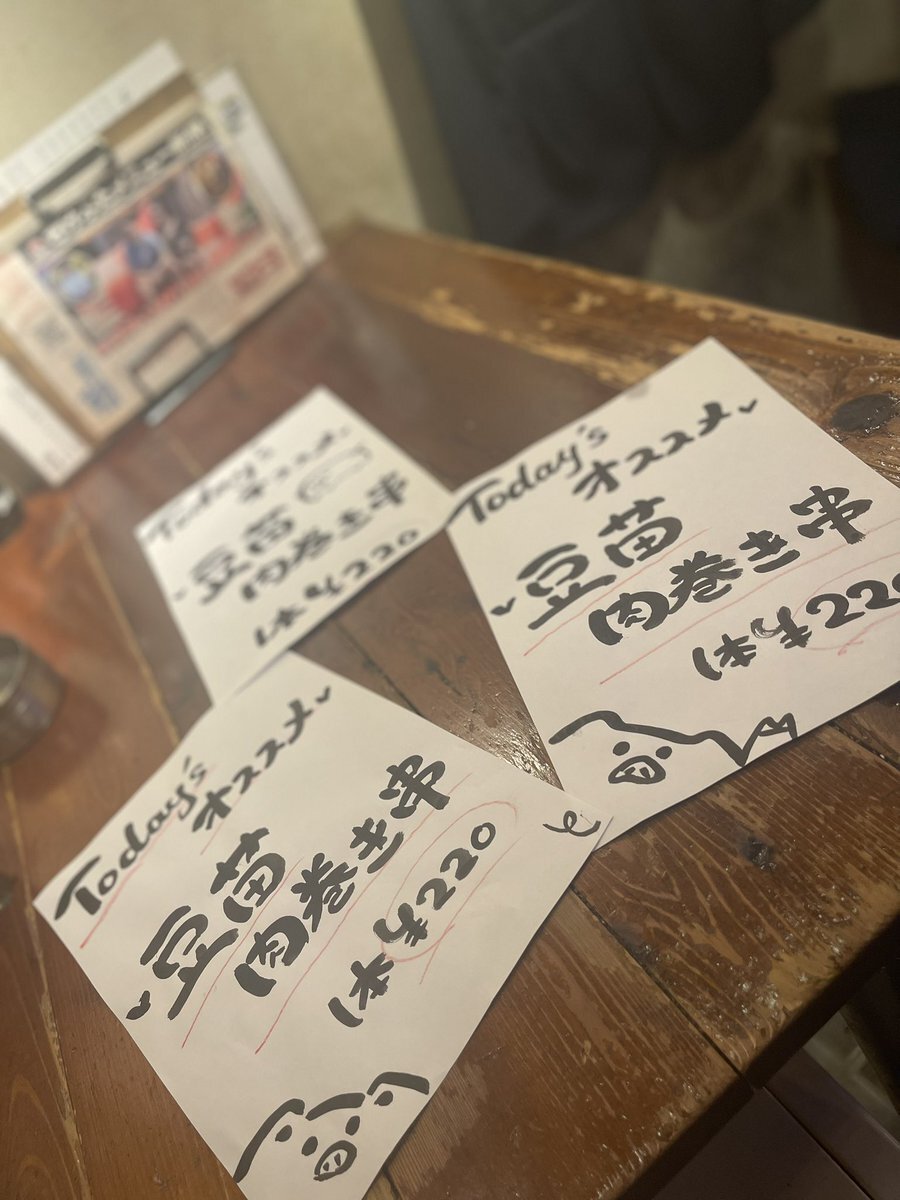 Today's
オススメ
豆苗
肉巻き串
1本¥220
Today's
オススメ
豆苗
肉巻き串
1本¥220
Today's
オススメ
豆苗
肉巻き串
1本¥220